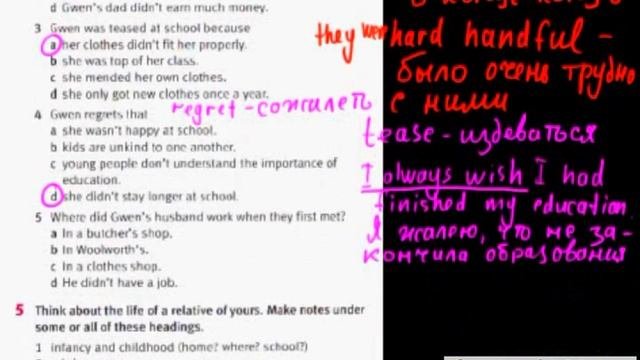 d Gwen's dad didn't earn much money.
3 Gwen was teased at school because
a her clothes didn't fit her properly.
b she was top of her class.
c she mended her own clothes.
d she only got new clothes once a year.
4 Gwen regrets that
a she wasn't happy at school.
b kids are unkind to one another.
c young people don't understand the importance of
education.
d she didn't stay longer at school.
5 Where did Gwen's husband work when they first met?
a In a butcher's shop.
b In Woolworth's.
c In a clothes shop.
d He didn't have a job.
5 Think about the life of a relative of yours. Make notes under
some or all of these headings.
1 infancy and childhood (home? where? school?)
they were hard handful -
было очень трудно
с ними
regret - сожалеть
tease - издеваться
I always wish I had
finished my education
Я жалею, что не за-
кончила образования